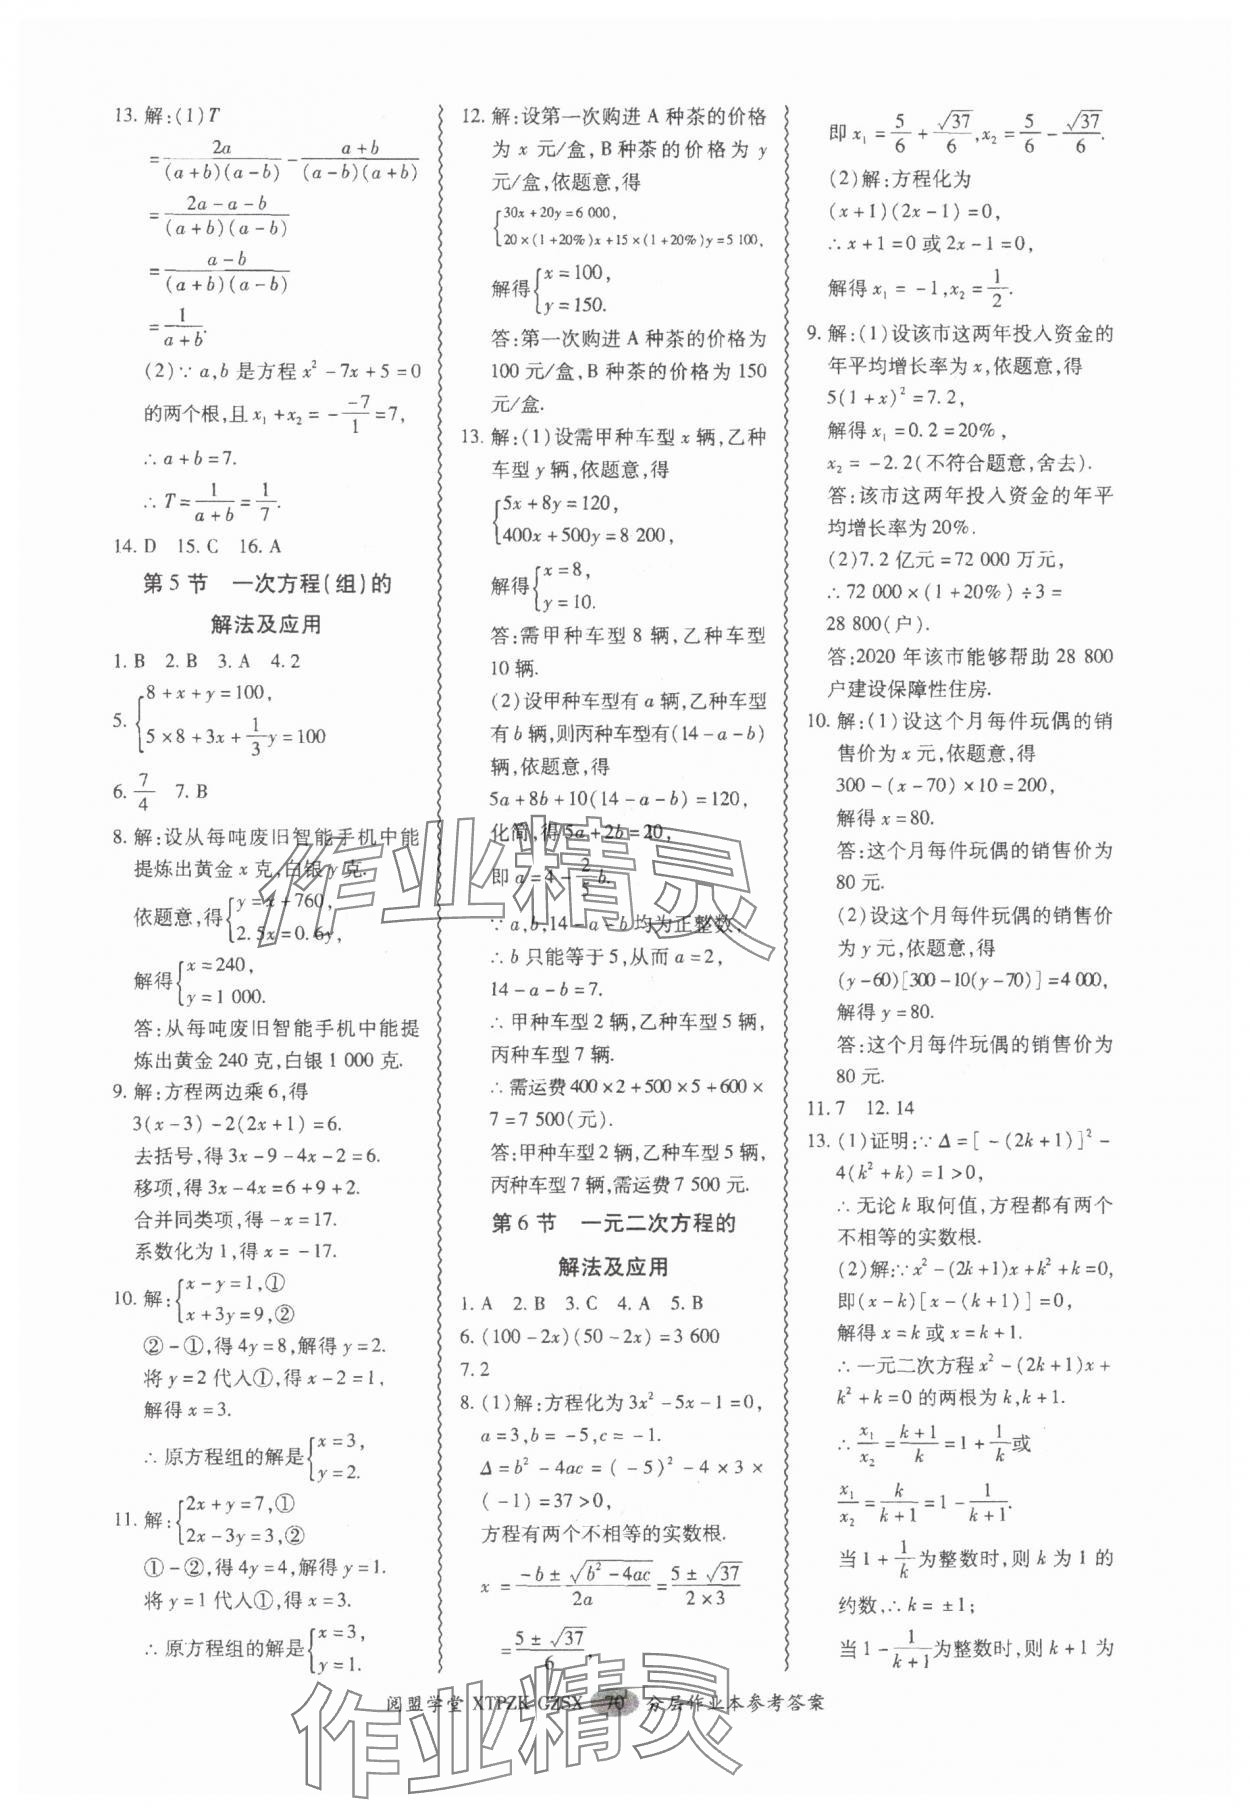 13. 解:(1)T
= 2a/((a+b)(a-b)) - (a+b)/((a-b)(a+b))
= (2a-a-b)/((a+b)(a-b))
= (a-b)/((a+b)(a-b))
= 1/(a+b).
(2)∵a,b 是方程 x²-7x+5=0
的两个根,且 x₁+x₂= -(-7)/1=7,
∴a+b=7.
∴T=1/(a+b)=1/7.
14. D 15. C 16. A
第5节 一次方程(组)的
解法及应用
1. B 2. B 3. A 4. 2
5. {8+x+y=100,
5×8+3x+1/3y=100
6. 7/4 7. B
8. 解:设从每吨废旧智能手机中能
提炼出黄金 x 克,白银 y 克.
依题意,得{y=x+760,
2.5x=0.6y,
解得{x=240,
y=1 000.
答:从每吨废旧智能手机中能提
炼出黄金 240 克,白银 1 000 克.
9. 解:方程两边乘6,得
3(x-3)-2(2x+1)=6.
去括号,得 3x-9-4x-2=6.
移项,得 3x-4x=6+9+2.
合并同类项,得 -x=17.
系数化为1,得 x=-17.
10. 解:{x-y=1,①
x+3y=9,②
②-①,得 4y=8,解得 y=2.
将 y=2 代入①,得 x-2=1,
解得 x=3.
∴原方程组的解是{x=3,
y=2.
11. 解:{2x+y=7,①
2x-3y=3,②
①-②,得 4y=4,解得 y=1.
将 y=1 代入①,得 x=3.
∴原方程组的解是{x=3,
y=1.
12. 解:设第一次购进 A 种茶的价格
为 x 元/盒,B 种茶的价格为 y
元/盒,依题意,得
{30x+20y=6 000,
20×(1+20%)x+15×(1+20%)y=5 100,
解得{x=100,
y=150.
答:第一次购进 A 种茶的价格为
100 元/盒,B 种茶的价格为 150
元/盒.
13. 解:(1)设需甲种车型 x 辆,乙种
车型 y 辆,依题意,得
{5x+8y=120,
400x+500y=8 200,
解得{x=8,
y=10.
答:需甲种车型 8 辆,乙种车型
10 辆.
(2)设甲种车型有 a 辆,乙种车型
有 b 辆,则丙种车型有(14-a-b)
辆,依题意,得
5a+8b+10(14-a-b)=120,
化简,得 5a+2b=20,
即 a=4-2/5b.
∵a,b,14-a-b 均为正整数,
∴b 只能等于 5,从而 a=2,
14-a-b=7.
∴甲种车型 2 辆,乙种车型 5 辆,
丙种车型 7 辆.
∴需运费 400×2+500×5+600×
7=7 500(元).
答:甲种车型 2 辆,乙种车型 5 辆,
丙种车型 7 辆,需运费 7 500 元.
第6节 一元二次方程的
解法及应用
1. A 2. B 3. C 4. A 5. B
6. (100-2x)(50-2x)=3 600
7. 2
8. (1)解:方程化为 3x²-5x-1=0,
a=3,b=-5,c=-1.
Δ=b²-4ac=(-5)²-4×3×
(-1)=37>0,
方程有两个不相等的实数根.
x=(-b±√(b²-4ac))/2a=(5±√37)/(2×3)
=(5±√37)/6,
即 x₁=5/6+√37/6,x₂=5/6-√37/6.
(2)解:方程化为
(x+1)(2x-1)=0,
∴x+1=0 或 2x-1=0,
解得 x₁=-1,x₂=1/2.
9. 解:(1)设该市这两年投入资金的
年平均增长率为 x,依题意,得
5(1+x)²=7.2,
解得 x₁=0.2=20%,
x₂=-2.2(不符合题意,舍去).
答:该市这两年投入资金的年平
均增长率为 20%.
(2)7.2 亿元=72 000 万元,
∴72 000×(1+20%)÷3=
28 800(户).
答:2020 年该市能够帮助 28 800
户建设保障性住房.
10. 解:(1)设这个月每件玩偶的销
售价为 x 元,依题意,得
300-(x-70)×10=200,
解得 x=80.
答:这个月每件玩偶的销售价为
80 元.
(2)设这个月每件玩偶的销售价
为 y 元,依题意,得
(y-60)[300-10(y-70)]=4 000,
解得 y=80.
答:这个月每件玩偶的销售价为
80 元.
11. 7 12. 14
13. (1)证明:∵Δ=[-(2k+1)]²-
4(k²+k)=1>0,
∴无论 k 取何值,方程都有两个
不相等的实数根.
(2)解:∵x²-(2k+1)x+k²+k=0,
即(x-k)[x-(k+1)]=0,
解得 x=k 或 x=k+1.
∴一元二次方程 x²-(2k+1)x+
k²+k=0 的两根为 k,k+1.
∴x₁/x₂=(k+1)/k=1+1/k或
x₁/x₂=k/(k+1)=1-1/(k+1).
当 1+1/k 为整数时,则 k 为 1 的
约数,∴k=±1;
当 1-1/(k+1) 为整数时,则 k+1 为
阅盟学堂 XTPZK·GZSX 70 分层作业本参考答案
作业精灵
作业精灵